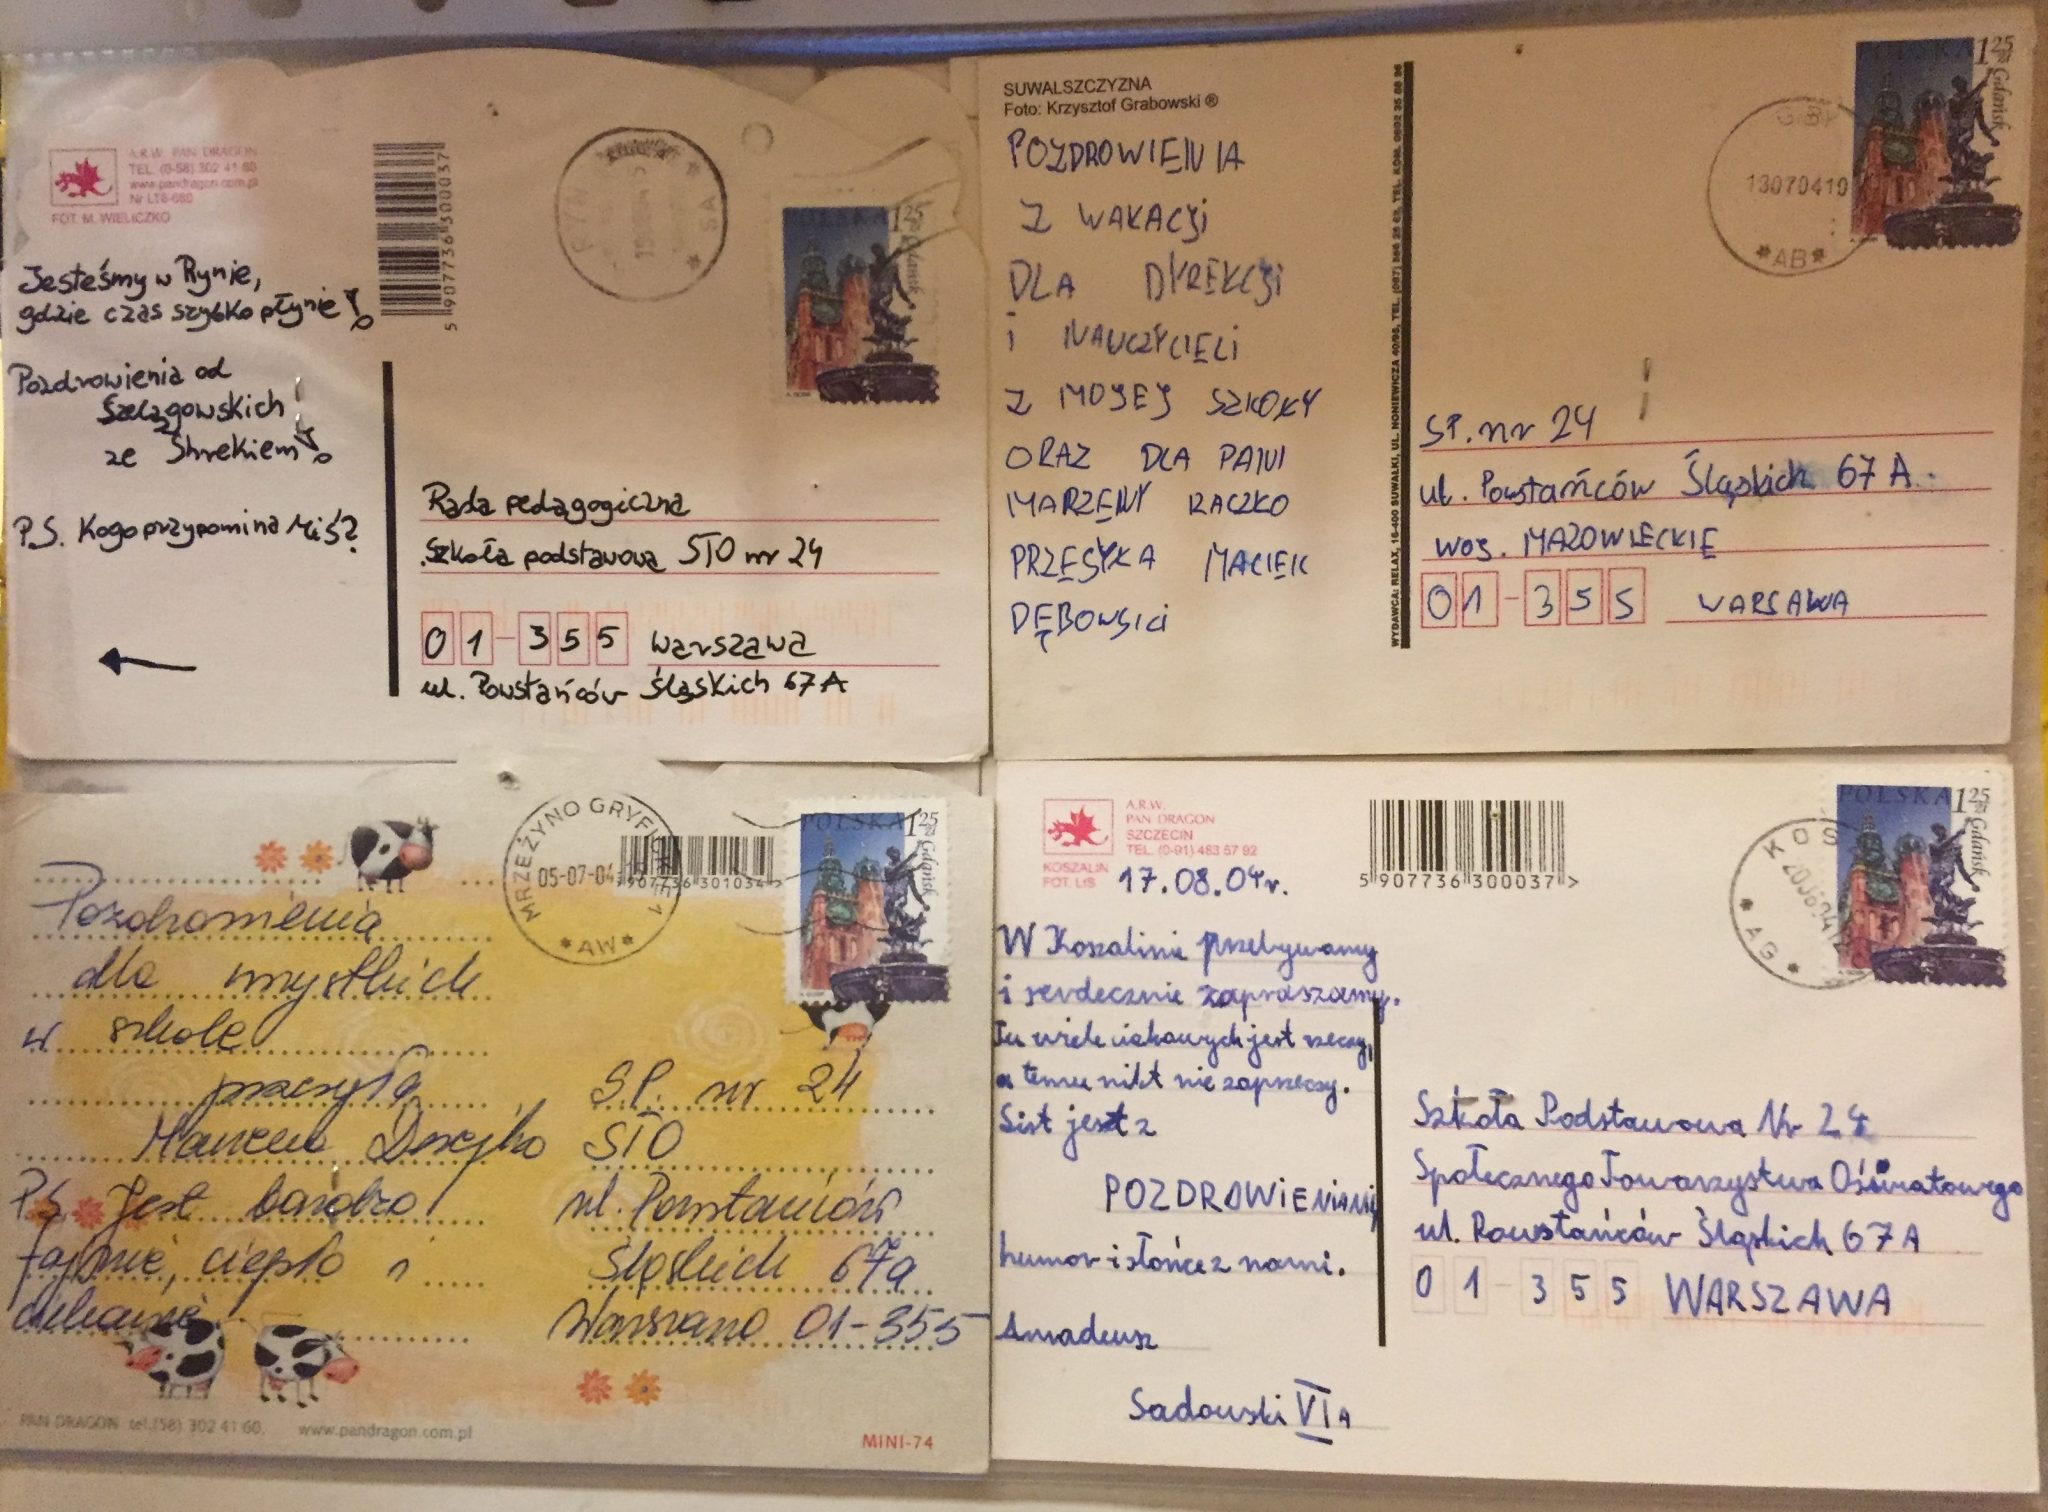 A.R.W. PAN DRAGON
TEL. (0-58) 302 41 60
www.pandragon.com.pl
Nr LT8-680
FOT. M. WIELICZKO
5 907736 300037
Jesteśmy w Rynie,
gdzie czas szybko płynie!
Pozdrowienia od
Szelągowskich
ze Shrekiem!
P.S. Kogo przypomina Miś?
POLSKA 1 25 zł
Gdańsk
Rada pedagogiczna
Szkoła podstawowa STO nr 24
01-355 Warszawa
ul. Powstańców Śląskich 67A
SUWALSZCZYZNA
Foto: Krzysztof Grabowski ®
POZDROWIENIA
Z WAKACJI
DLA DYREKCJI
i NAUCZYCIELI
Z MOJEJ SZKOŁY
ORAZ DLA PANI
MARZENY RACZKO
PRZESYŁA MACIEK
DĘBOWSKI
WYDAWCA: RELAX, 16-400 SUWAŁKI, UL. NONIEWICZA
POLSKA 1 25 zł
Gdańsk
GIBY
13070410
*AB*
SP. nr 24
ul. Powstańców Śląskich 67 A.
woj. MAZOWIECKIE
01-355 WARSAWA
Pozdrowienia
dla wszystkich
w szkole
przesyła
P.S. Jest bardzo
fajnie, ciepło i
ciekawie
MRZEŻYNO GRYFICKIE 1
05-07-04
*AW*
907736 301034 >
POLSKA 1 25 zł
Gdańsk
S.P. nr 24
STO
ul. Powstańców
Śląskich 67a
Warszawa 01-355
PAN DRAGON tel.(58) 302 41 60. www.pandragon.com.pl
MINI-74
A.R.W.
PAN DRAGON
SZCZECIN
TEL. (0-91) 483 57 92
KOSZALIN
FOT. LIS
17.08.04r.
5 907736 300037 >
W Koszalinie przebywamy
i serdecznie zapraszamy.
Tu wiele ciekawych jest rzeczy,
a temu nikt nie zaprzeczy.
List jest z
POZDROWIENIAMI,
humor i słońce z nami.
Amadeusz
Sadowski VI A
POLSKA 1 25 zł
Gdańsk
KOS
* AG *
Szkoła Podstawowa Nr 24
Społecznego Towarzystwa Oświatowego
ul. Powstańców Śląskich 67A
01-355 WARSZAWA